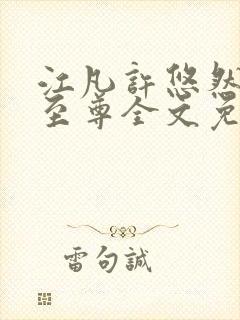 江凡許悠然
至尊全文免
雷句誠